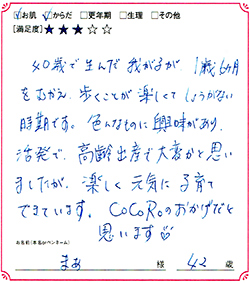 ☑お肌 ☑からだ □更年期 □生理 □その他
[満足度]★★★☆☆
40歳で生んだ我が子が 1歳6ヵ月
をむかえ、歩くことが楽しくてしょうがない
時期です。色んなものに興味があり、
活発で、高齢出産で大変かと思い
ましたが、楽しく元気に子育て
できています。CoCoRoのおかげだと
思います
お名前(本名orペンネーム)
まぁ 様 42 歳